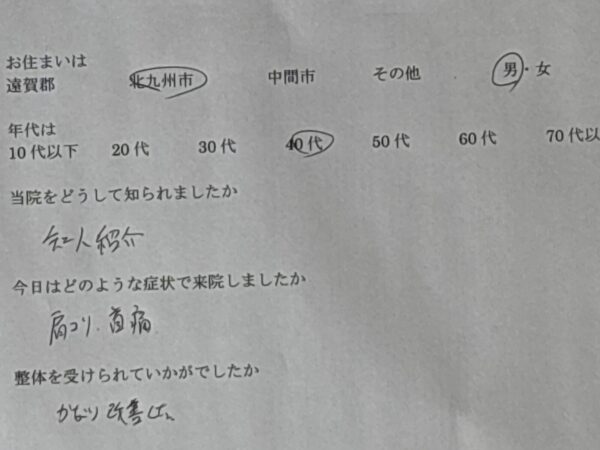 お住まいは
遠賀郡 北九州市 中間市 その他 男・女
年代は
10代以下 20代 30代 40代 50代 60代 70代以
当院をどうして知られましたか
知人紹介
今日はどのような症状で来院しましたか
肩コリ、首痛
整体を受けられていかがでしたか
かなり改善した